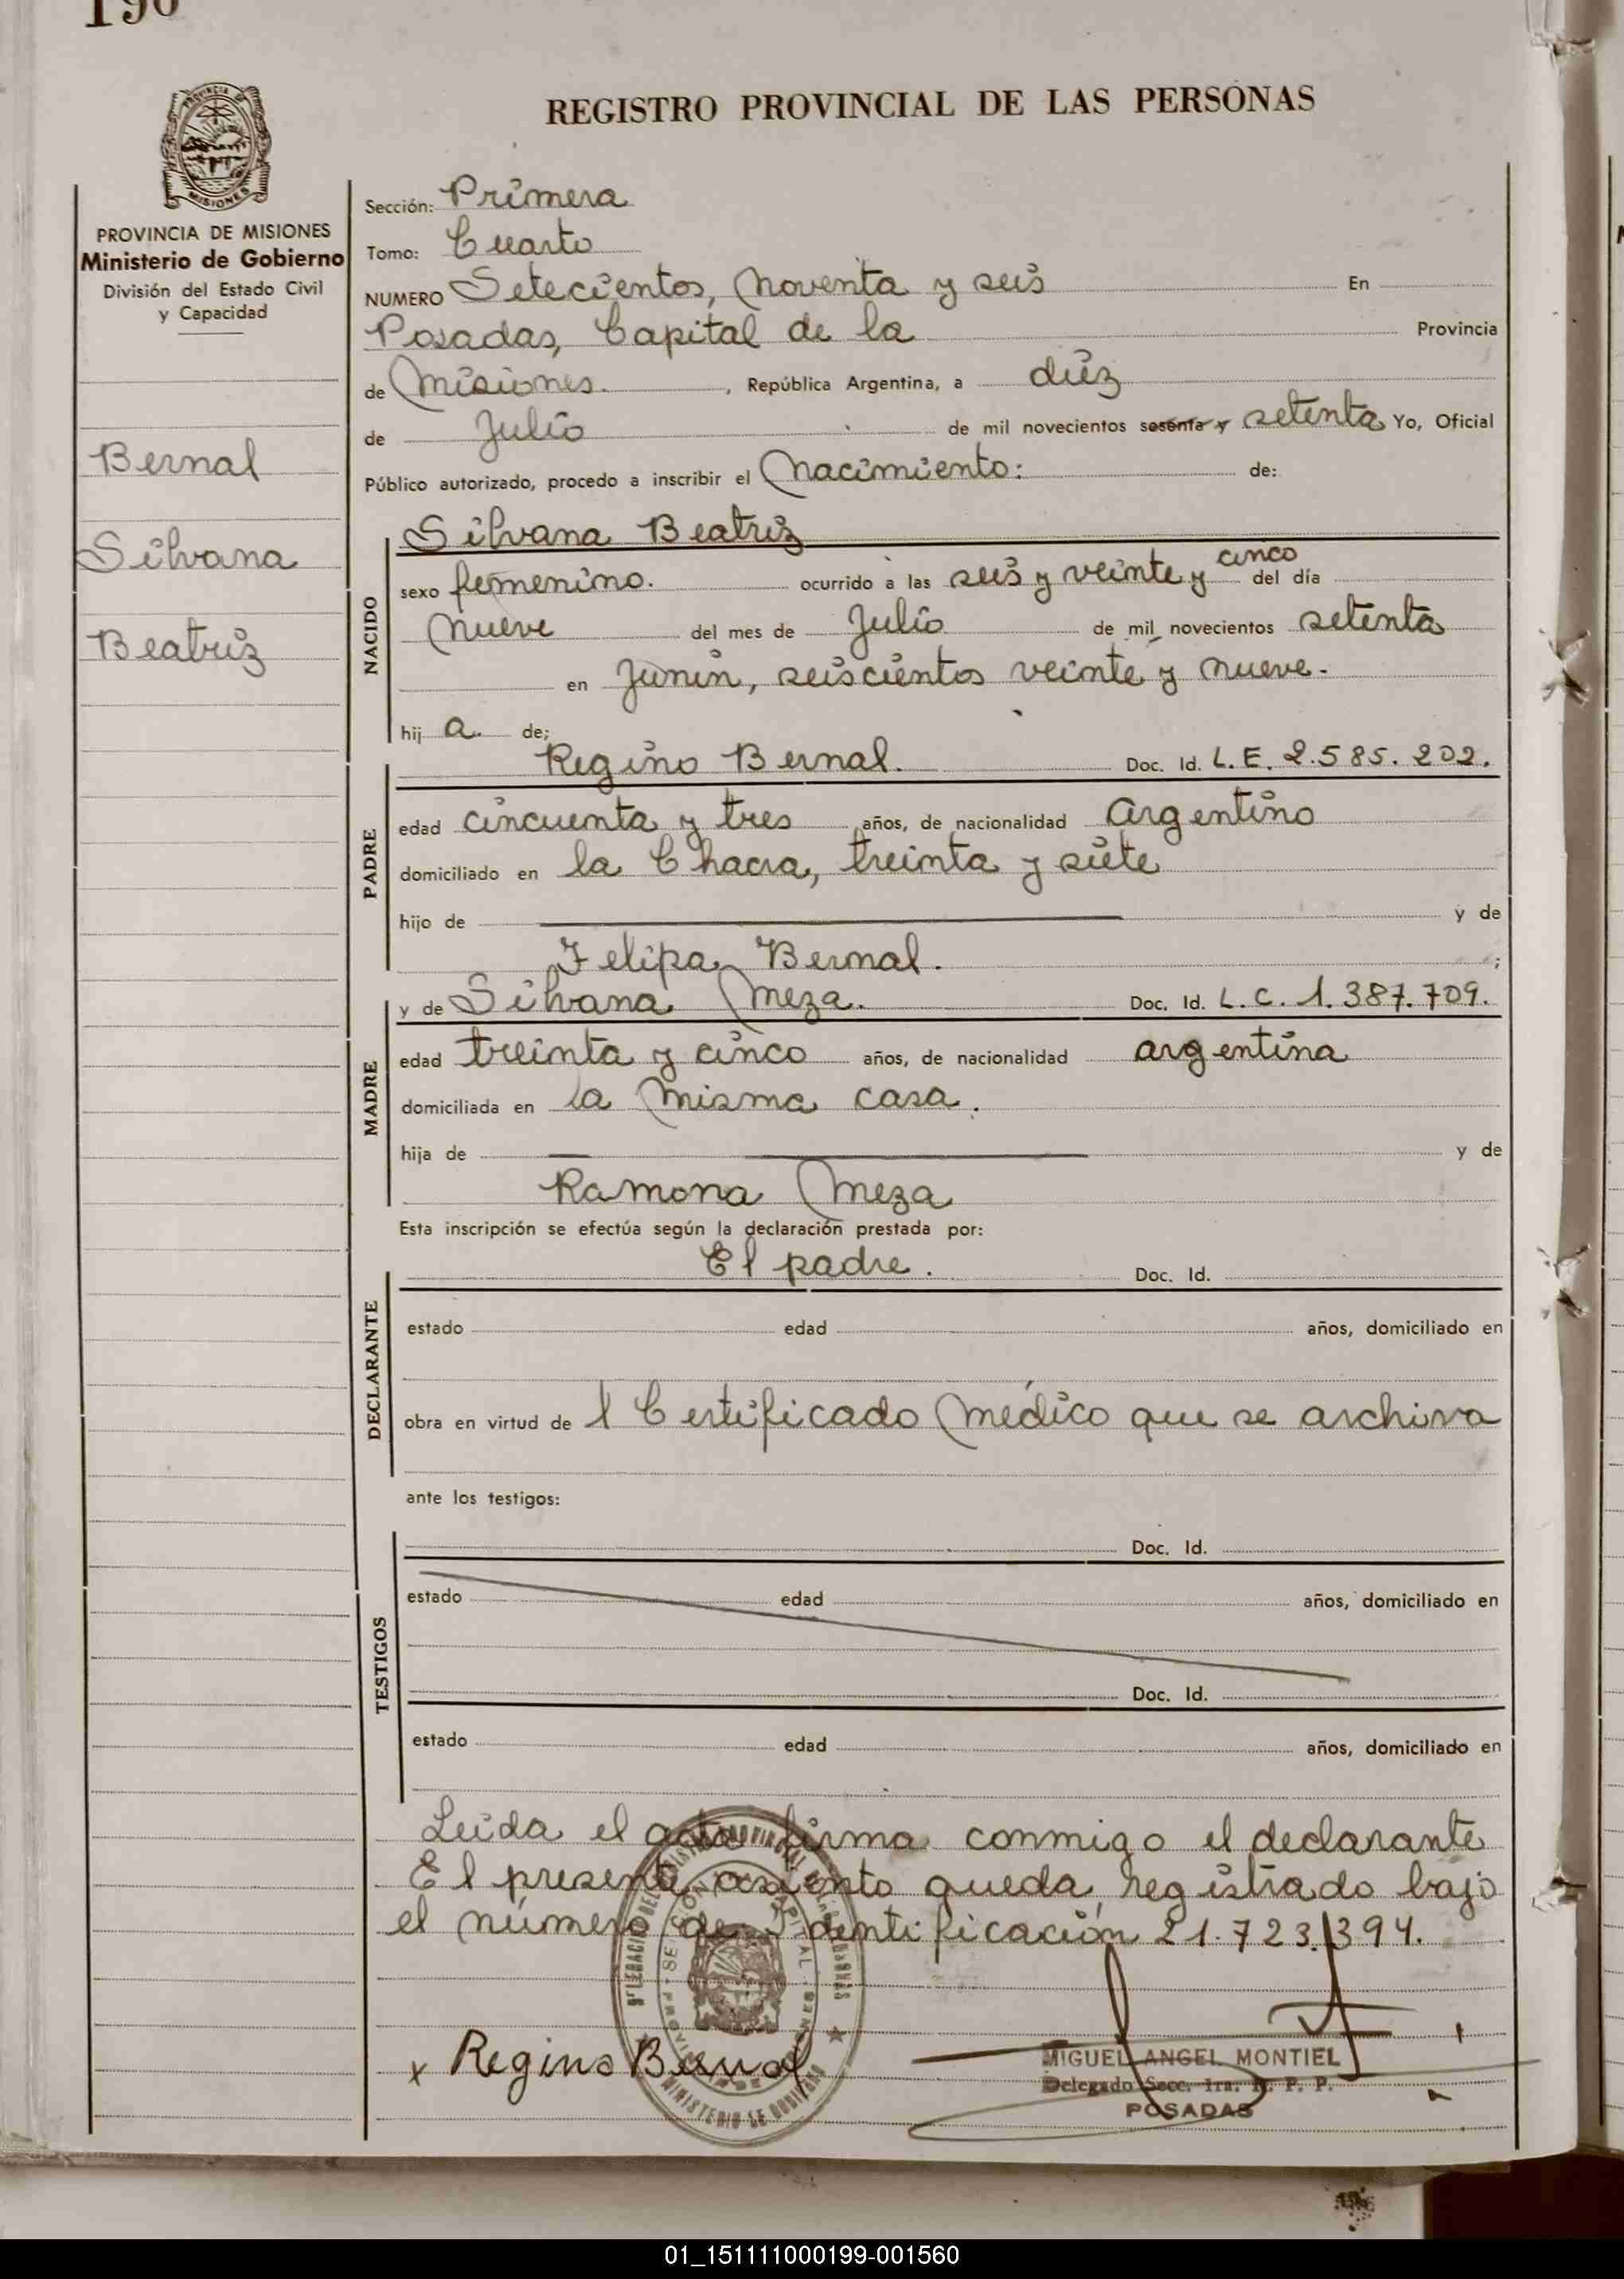 196
PROVINCIA DE MISIONES
PROVINCIA DE MISIONES
Ministerio de Gobierno
División del Estado Civil
y Capacidad
Bernal
Silvana
Beatriz
REGISTRO PROVINCIAL DE LAS PERSONAS
Sección: Primera
Tomo: Cuarto
NUMERO Setecientos, noventa y seis En
Posadas, Capital de la Provincia
de Misiones. , República Argentina, a diez
de Julio de mil novecientos sesenta y setenta Yo, Oficial
Público autorizado, procedo a inscribir el Nacimiento: de:
NACIDO
Silvana Beatriz
sexo femenino. ocurrido a las seis y veinte y cinco del día
nueve del mes de Julio de mil novecientos setenta
en Junín, seiscientos veinte y nueve.
hij a. de;
PADRE
Regino Bernal. Doc. Id. L.E. 2.585.202.
edad cincuenta y tres años, de nacionalidad argentino
domiciliado en la Chacra, treinta y siete
hijo de y de
Felipa Bernal. ;
MADRE
y de Silvana Meza. Doc. Id. L.C. 1.387.709.
edad treinta y cinco años, de nacionalidad argentina
domiciliada en la misma casa.
hija de y de
Ramona Meza
Esta inscripción se efectúa según la declaración prestada por:
DECLARANTE
El padre. Doc. Id.
estado edad años, domiciliado en
obra en virtud de 1 Certificado médico que se archiva
ante los testigos:
TESTIGOS
Doc. Id.
estado edad años, domiciliado en
Doc. Id.
estado edad años, domiciliado en
Leída el acta firma conmigo el declarante
El presente asiento queda registrado bajo
el número de Identificación 21.723.394.
x Regino Bernal
MIGUEL ANGEL MONTIEL
Delegado Secc. 1ra. R. P. P.
POSADAS
MINISTERIO DE GOBIERNO
01_151111000199-001560